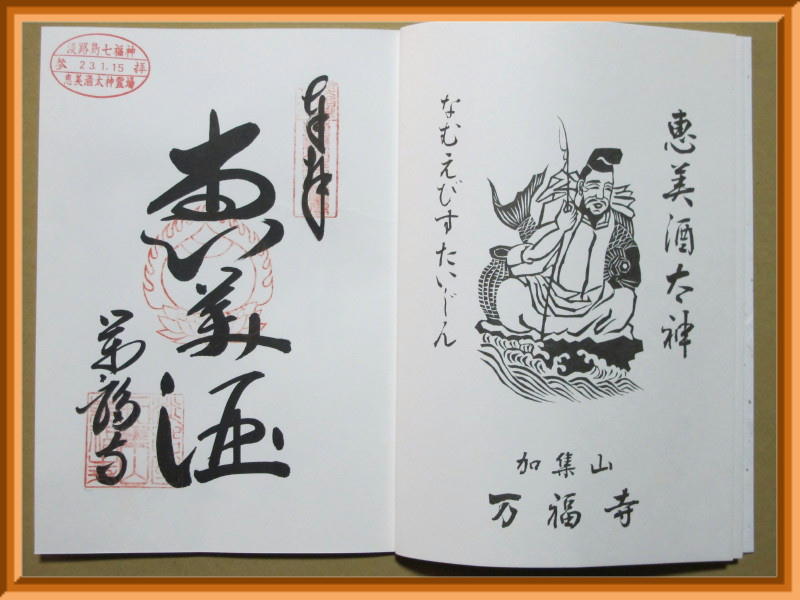 恵美酒太神
なむえびすたいじん
加集山
万福寺
奉拝
恵美酒
萬福寺
淡路島七福神
参 23.1.15 拝
恵美酒太神霊場